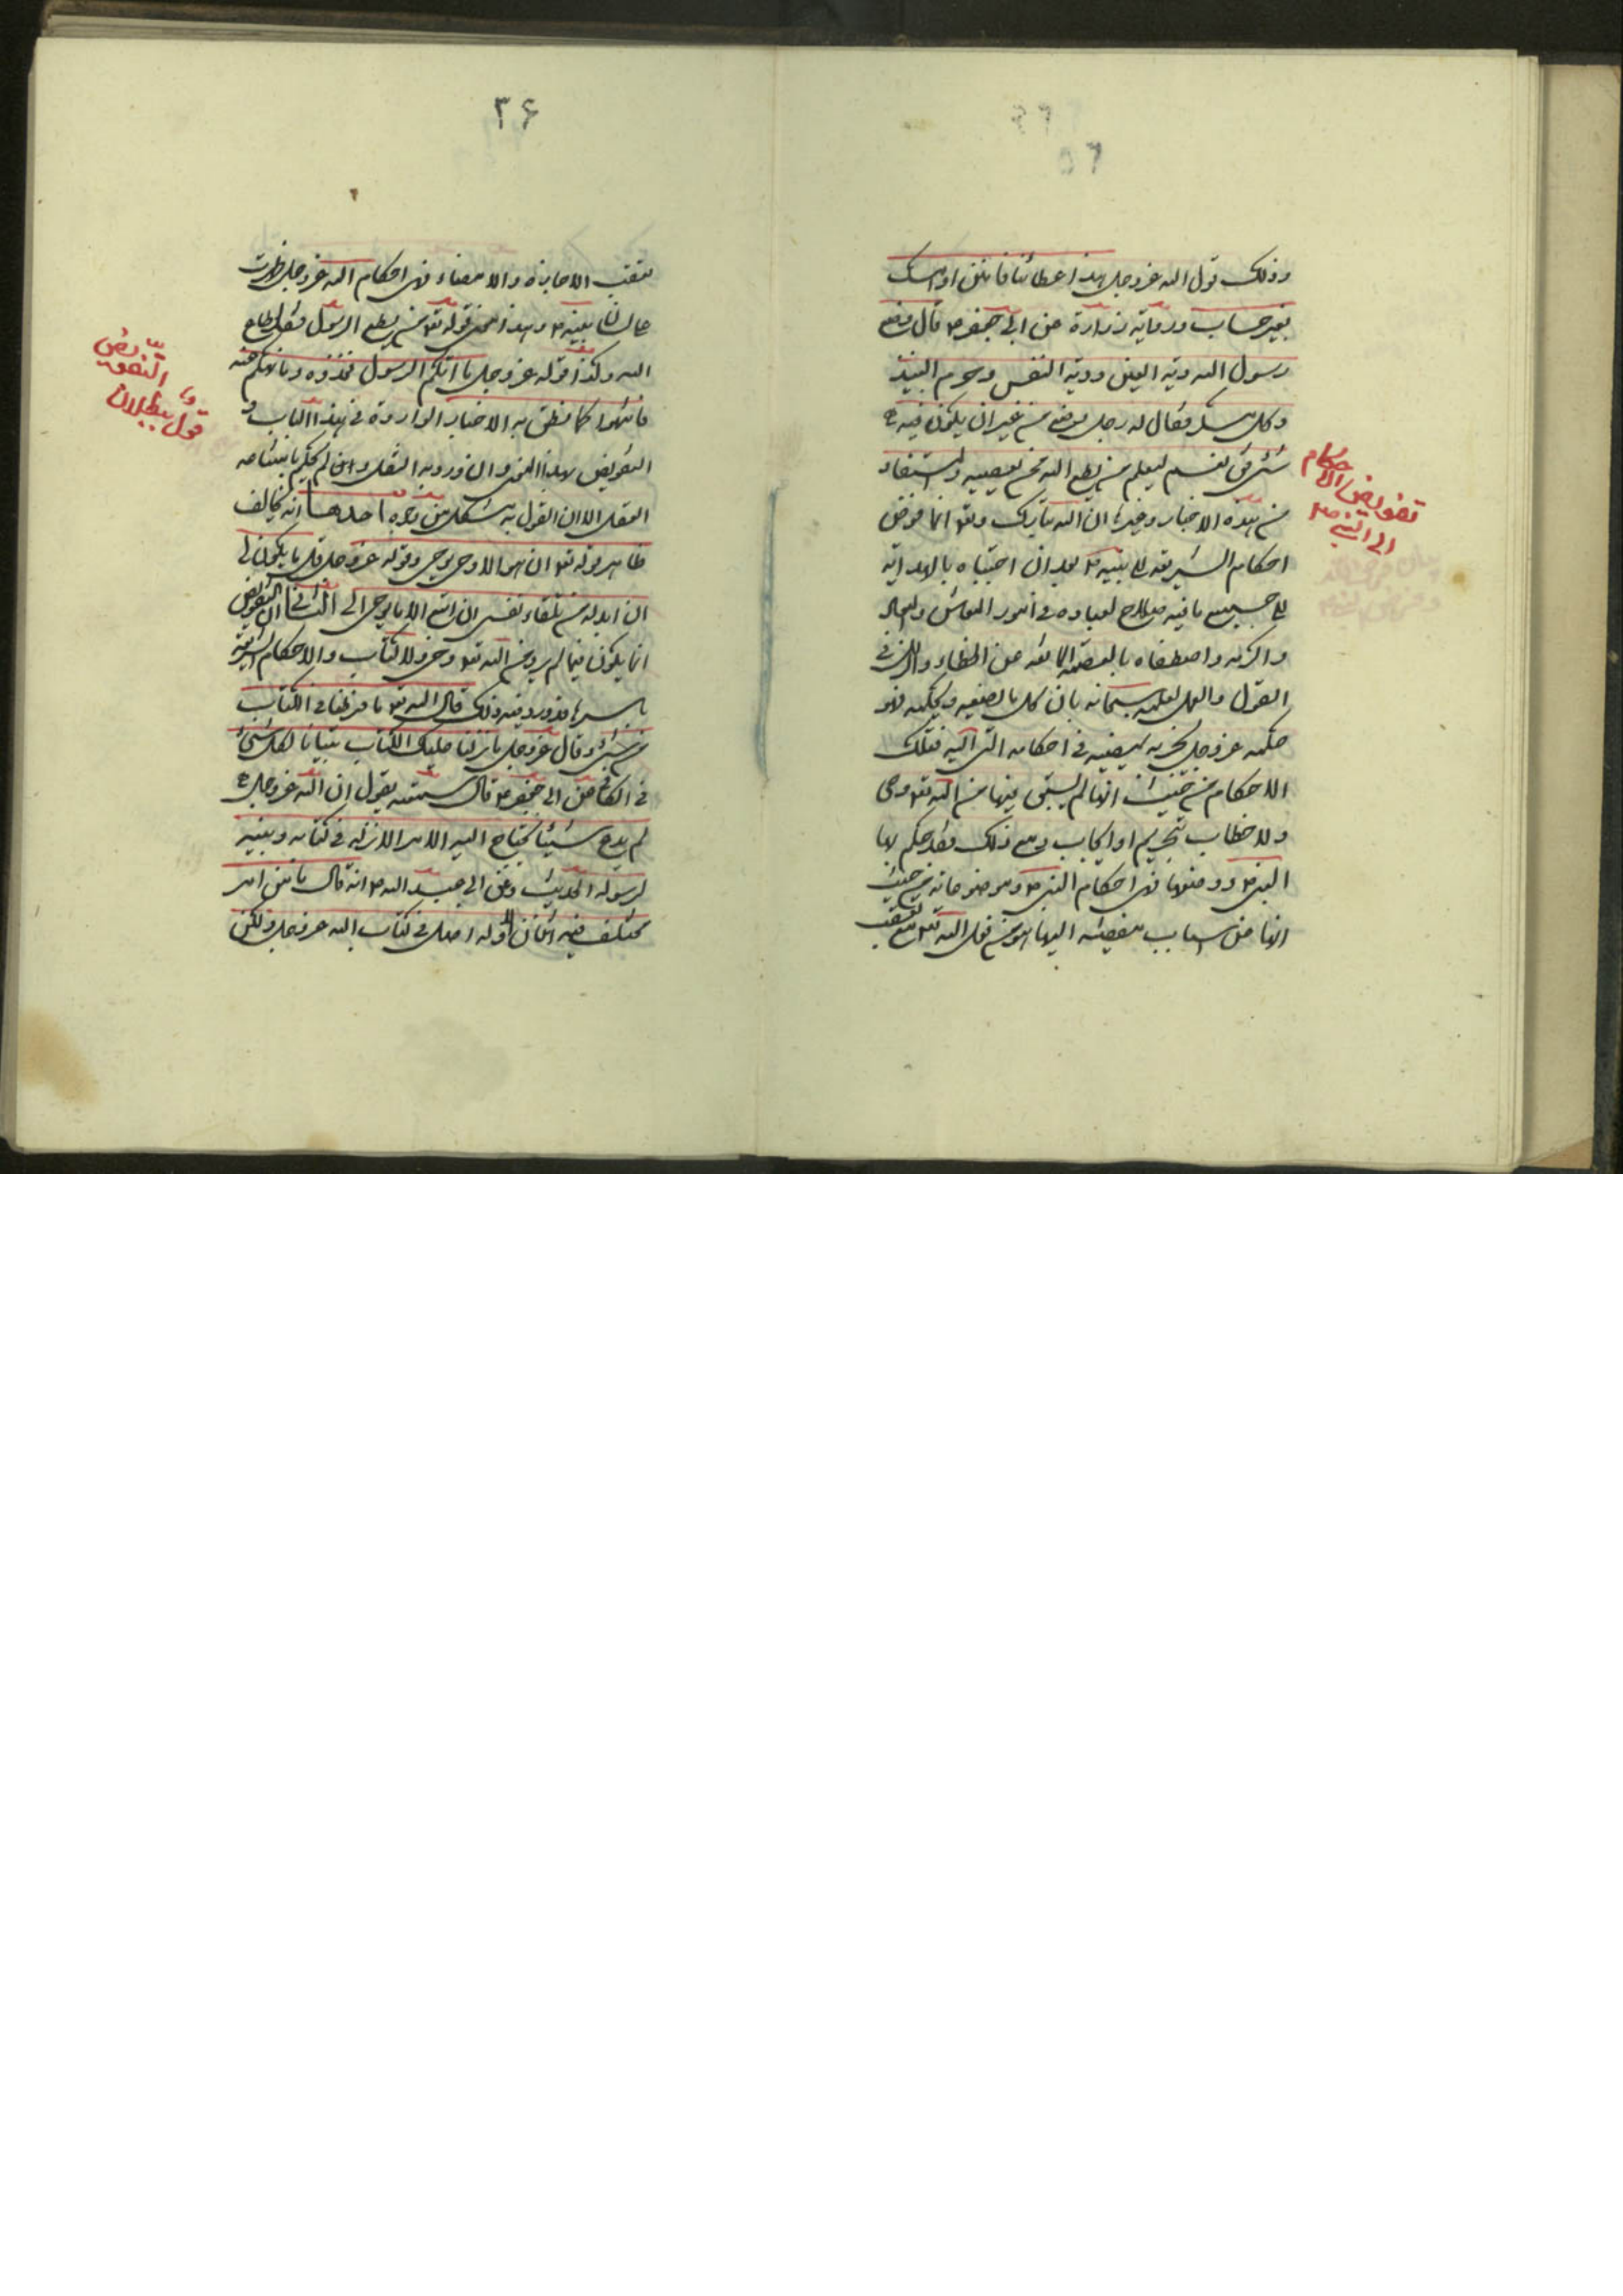 وذلك قول الله عز وجل هذا عطائنا فامنن او امسك
بغير حساب ورواية زرارة عن ابي جعفر ع قال وضع
رسول الله دية العين ودية النفس وحرم النبيذ
وكل مسكر فقال له رجل وضع من غير ان يكون فيه
شئ قال نعم ليعلم من يطع الله ممن يعصيه والمستفاد
من هذه الاخبار وغيرها ان الله تبارك وتعو انما فوض
احكام الشريعة الى نبيه ص بعد ان اجتباه بالهداية
الى جميع ما فيه صلاح لعباده في امور المعاش والمعاد
واكرمه واصطفاه بالعصمة المانعة عن الخطاء والزلل في
القول والعمل لعلمه سبحانه بان كل ما يصنعه ويحكمه فهو
حكمه عز وجل يجريه يمضيه في احكامه التى اليه فتلك
الاحكام من حيث انها لم يسبق فيها من الله تعو وحى
ولا خطاب بتحريم او ايجاب ومع ذلك فقد حكم بها
النبي ص ووضعها فهى احكام النبي ص وموضوعاته ومن حيث
انها عن اسباب مفضية اليها هو من فعل الله تعو مع تعقب
تفويض الاحكام
الى النبي ص
۳۶
بتعقب الاجازة والامضاء فهى احكام الله عز وجل ظهرت
على لسان نبيه ص وهذا معنى قوله تعو من يطع الرسول فقد اطاع
الله وكذا قوله عز وجل ما اتيكم الرسول فخذوه وما نهيكم عنه
فانتهوا كما نطق به الاخبار الواردة في هذا الباب و
التفويض بهذا المعنى وان ورد به النقل وان لم يحكم بامتناعه
العقل الا ان القول به مشكل من وجوه احدها انه يخالف
ظاهر قوله تعو ان هو الا وحى يوحى وقوله عز وجل قل ما يكون لى
ان ابدله من تلقاء نفسى ان اتبع الا ما يوحى الى الثاني ان التفويض
انما يكون فيما لم يرد من الله تعو وحى ولا كتاب والاحكام الشرعية
باسرها قد ورد فيه ذلك قال الله تعو ما فرطنا في الكتاب
من شئ وقال عز وجل ما نزلنا عليك الكتاب تبيانا لكل شئ
في الكافي عن ابي جعفر ع قال سمعته يقول ان الله عز وجل
لم يدع شيئا يحتاج اليه الامة الا انزله في كتابه وبينه
لرسوله الحديث وعن ابي عبد الله ع انه قال ما من امر
يختلف فيه اثنان الا وله اصل في كتاب الله عز وجل ولكن
التفويض
قول ببطلان